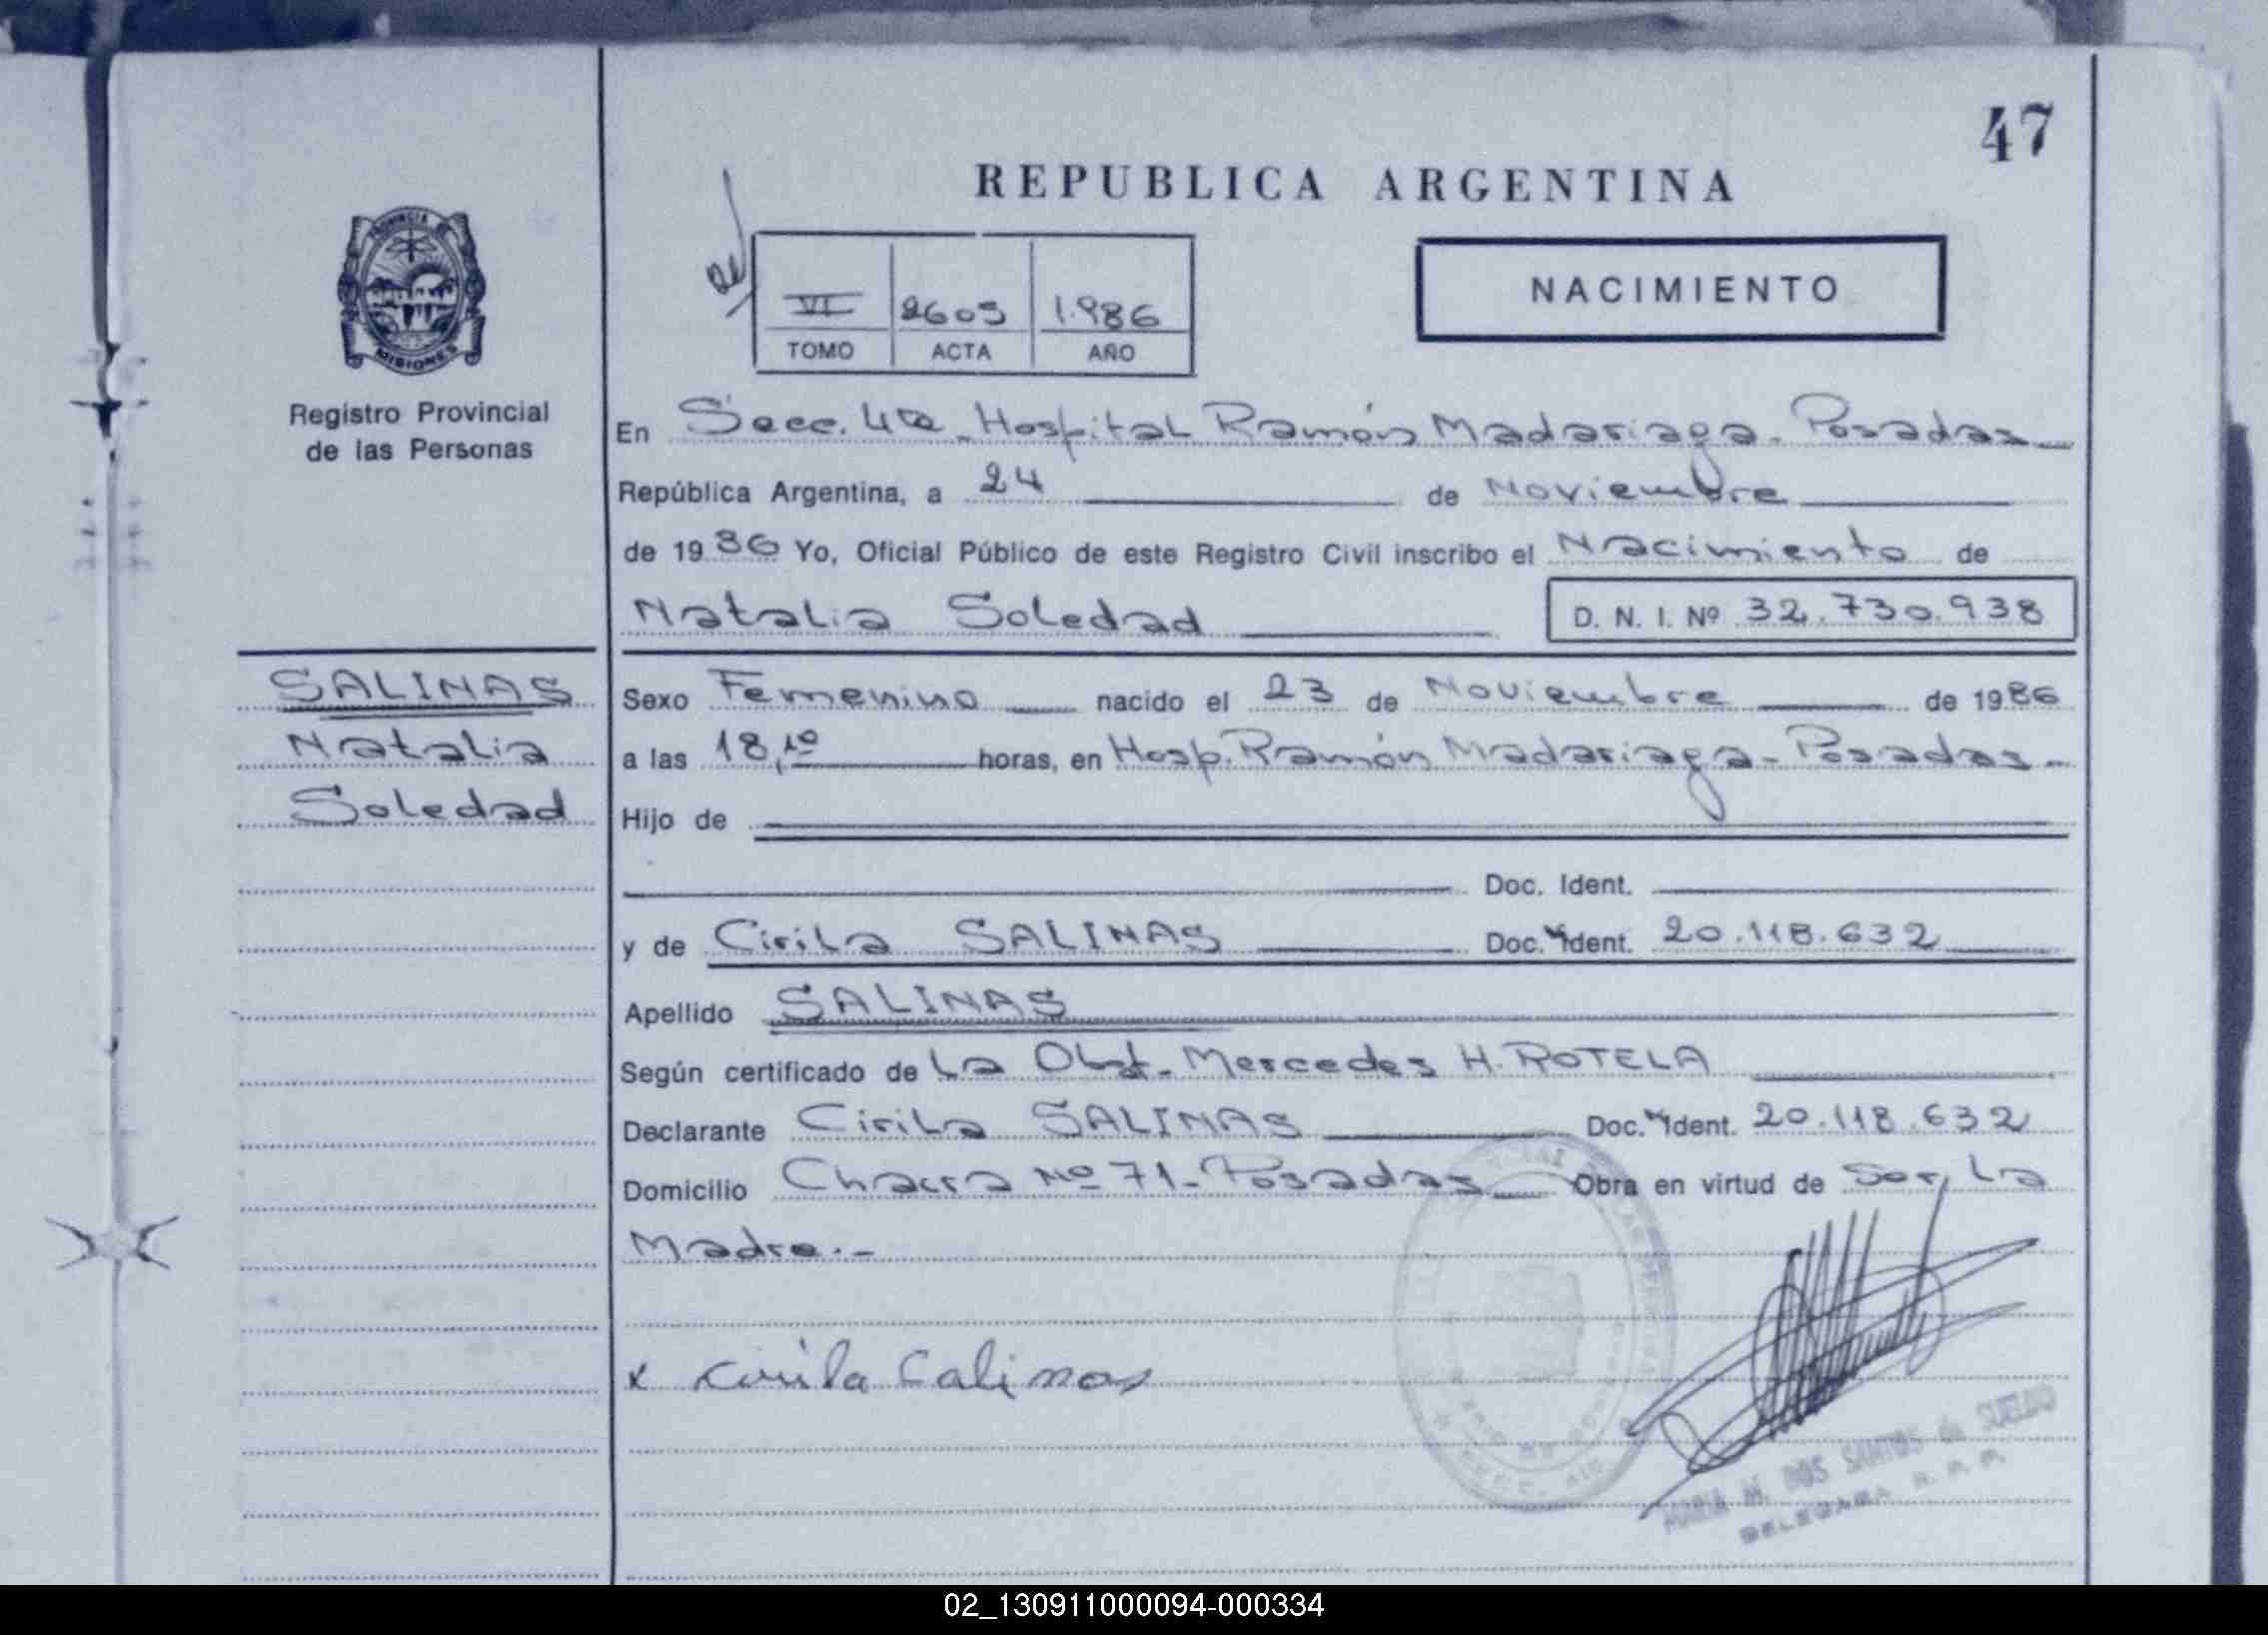 47
REPUBLICA ARGENTINA
PROVINCIA DE
MISIONES
Registro Provincial
de las Personas
VI 2605 1.986
TOMO ACTA AÑO
NACIMIENTO
En Secc. 4ta - Hospital Ramón Madariaga - Posadas
República Argentina, a 24 de Noviembre
de 19 86 Yo, Oficial Público de este Registro Civil inscribo el Nacimiento de
Natalia Soledad D. N. I. Nº 32.730.938
SALINAS
Natalia
Soledad
Sexo Femenino nacido el 23 de Noviembre de 1986
a las 18,10 horas, en Hosp. Ramón Madariaga - Posadas -
Hijo de
Doc. Ident.
y de Cirila SALINAS Doc. Ident. 20.118.632
Apellido SALINAS
Según certificado de La Obst. Mercedes H. ROTELA
Declarante Cirila SALINAS Doc. Ident. 20.118.632
Domicilio Chacra Nº 71 - Posadas Obra en virtud de Ser La
Madre.-
x Cirila Salinas
MARIA M. DOS SANTOS de SUELDO
DELEGADA R. P. P.
02_130911000094-000334